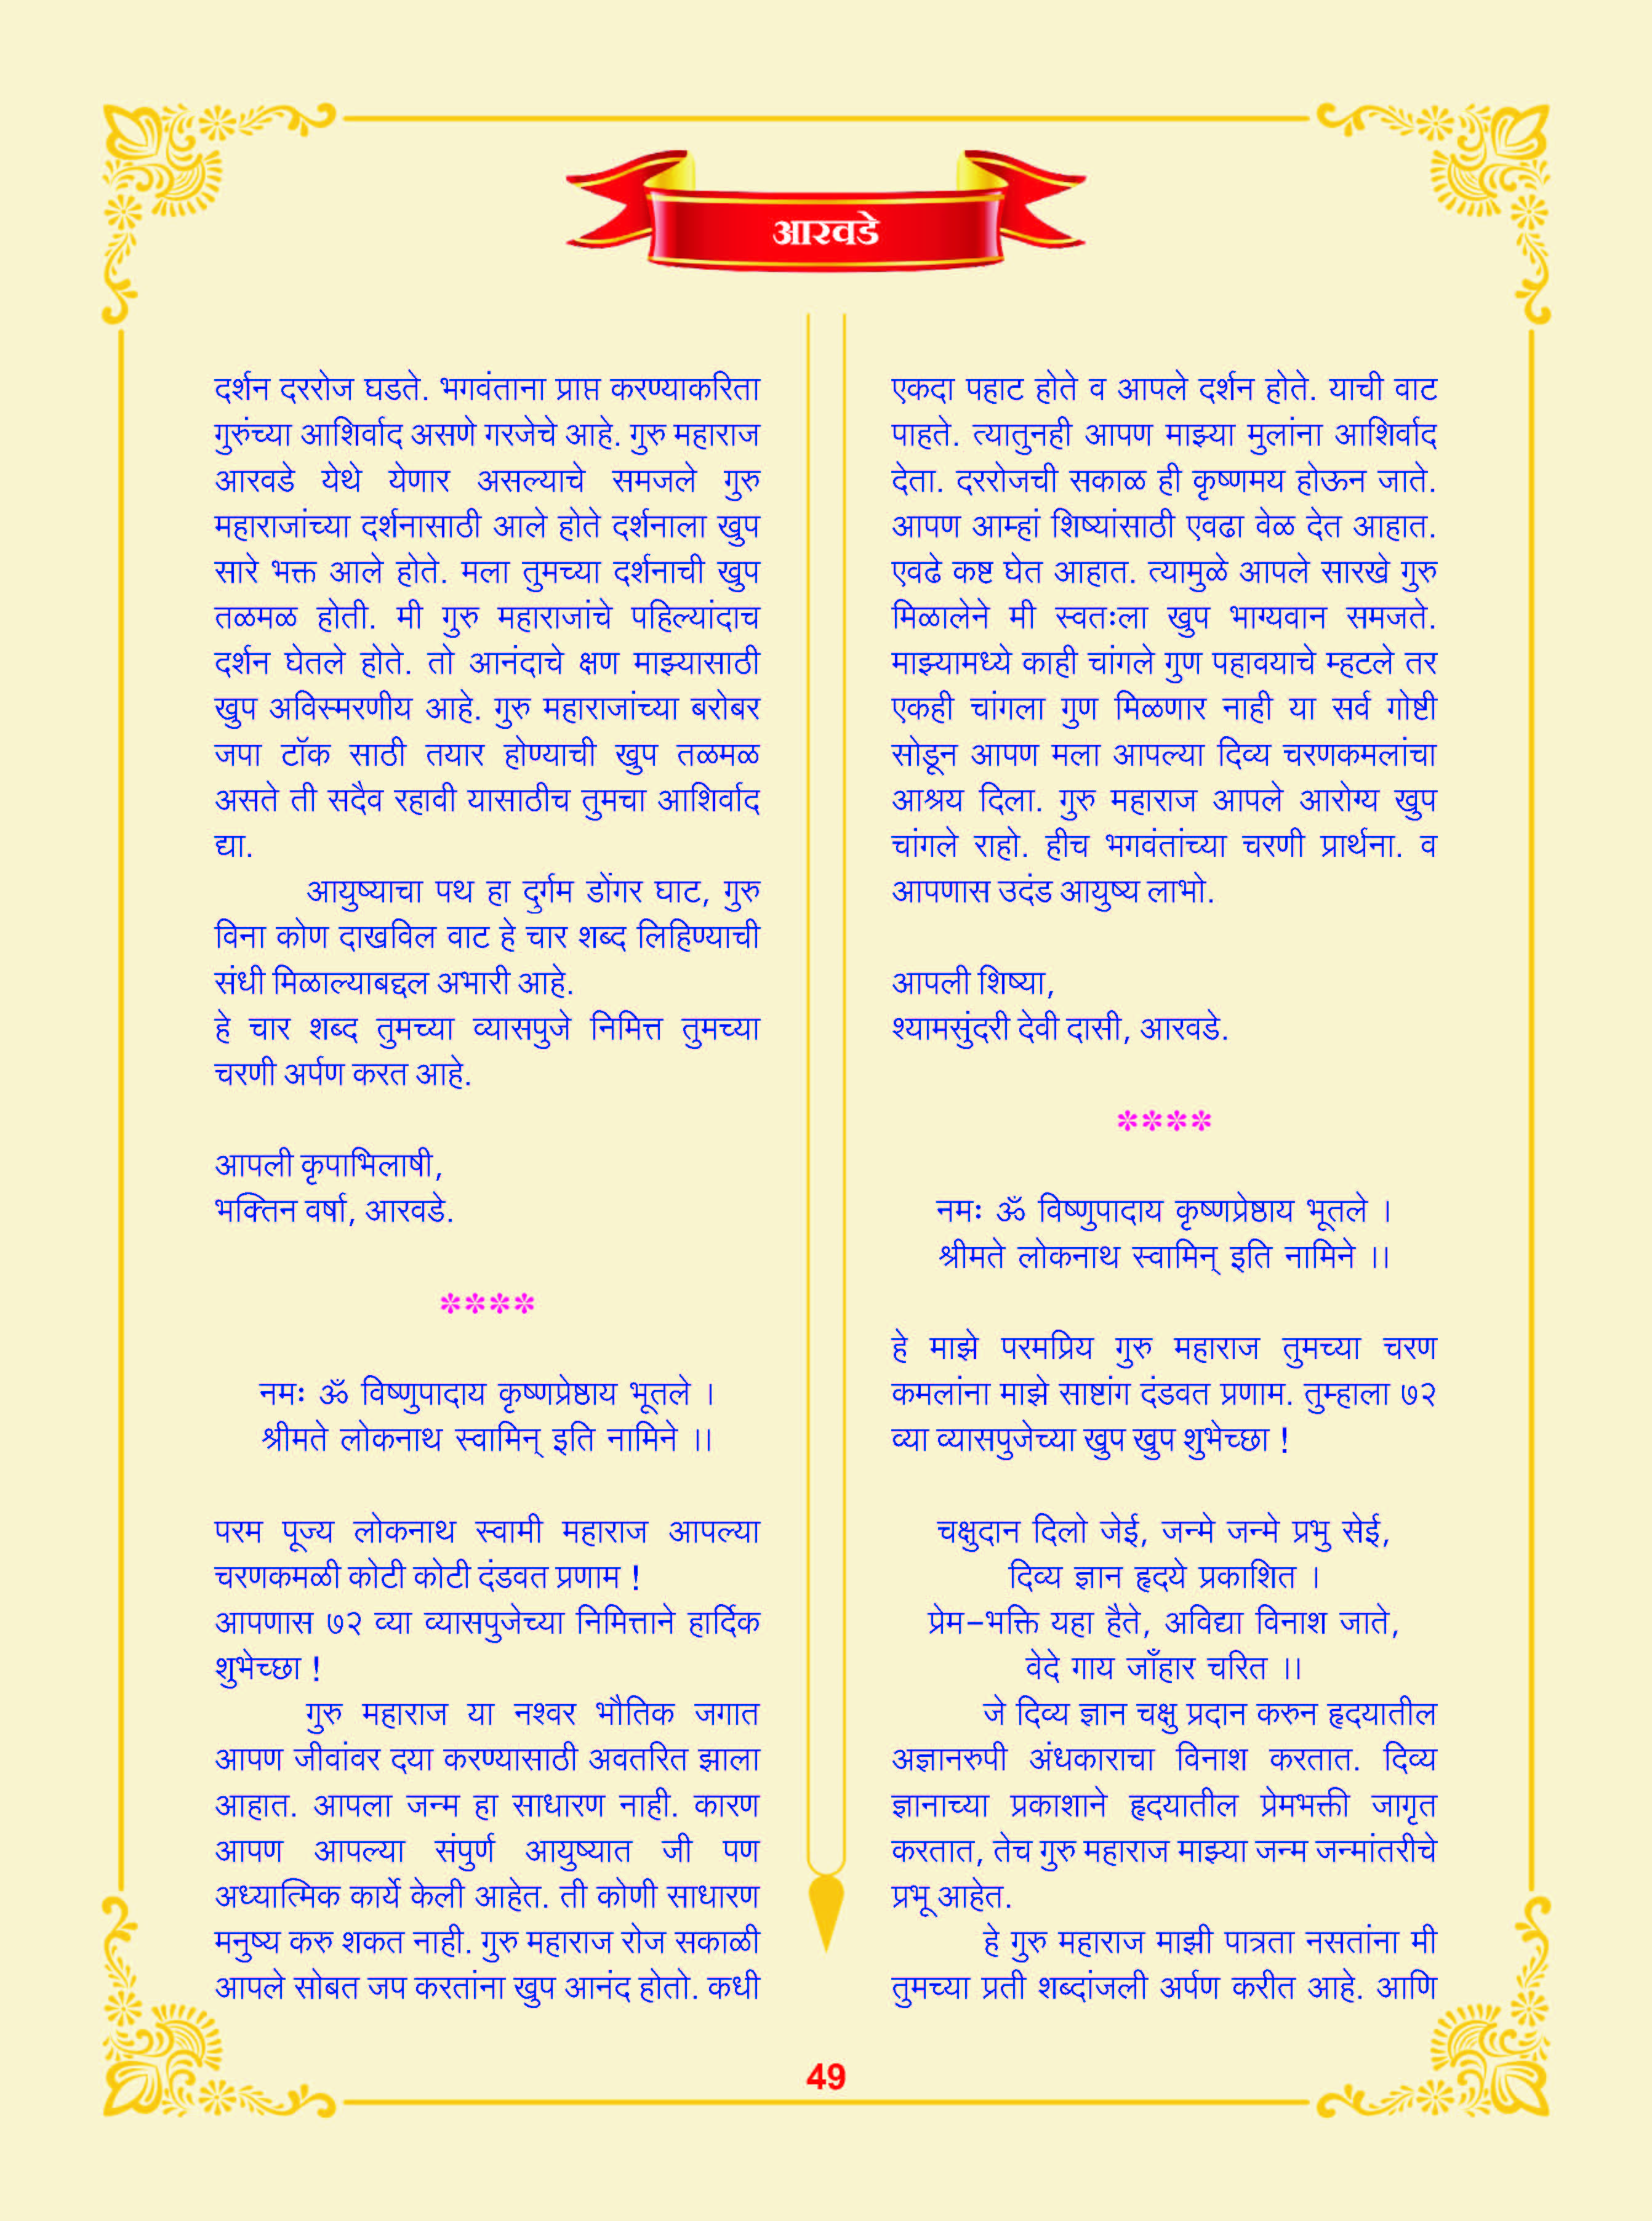 आरवडे
दर्शन दररोज घडते. भगवंताना प्राप्त करण्याकरिता
गुरुंच्या आशिर्वाद असणे गरजेचे आहे. गुरु महाराज
आरवडे येथे येणार असल्याचे समजले गुरु
महाराजांच्या दर्शनासाठी आले होते दर्शनाला खुप
सारे भक्त आले होते. मला तुमच्या दर्शनाची खुप
तळमळ होती. मी गुरु महाराजांचे पहिल्यांदाच
दर्शन घेतले होते. तो आनंदाचे क्षण माझ्यासाठी
खुप अविस्मरणीय आहे. गुरु महाराजांच्या बरोबर
जपा टॉक साठी तयार होण्याची खुप तळमळ
असते ती सदैव रहावी यासाठीच तुमचा आशिर्वाद
द्या.
आयुष्याचा पथ हा दुर्गम डोंगर घाट, गुरु
विना कोण दाखविल वाट हे चार शब्द लिहिण्याची
संधी मिळाल्याबद्दल अभारी आहे.
हे चार शब्द तुमच्या व्यासपुजे निमित्त तुमच्या
चरणी अर्पण करत आहे.
आपली कृपाभिलाषी,
भक्तिन वर्षा, आरवडे.
****
नमः ॐ विष्णुपादाय कृष्णप्रेष्ठाय भूतले ।
श्रीमते लोकनाथ स्वामिन् इति नामिने ।।
परम पूज्य लोकनाथ स्वामी महाराज आपल्या
चरणकमळी कोटी कोटी दंडवत प्रणाम !
आपणास ७२ व्या व्यासपुजेच्या निमित्ताने हार्दिक
शुभेच्छा !
गुरु महाराज या नश्वर भौतिक जगात
आपण जीवांवर दया करण्यासाठी अवतरित झाला
आहात. आपला जन्म हा साधारण नाही. कारण
आपण आपल्या संपुर्ण आयुष्यात जी पण
अध्यात्मिक कार्ये केली आहेत. ती कोणी साधारण
मनुष्य करु शकत नाही. गुरु महाराज रोज सकाळी
आपले सोबत जप करतांना खुप आनंद होतो. कधी
एकदा पहाट होते व आपले दर्शन होते. याची वाट
पाहते. त्यातुनही आपण माझ्या मुलांना आशिर्वाद
देता. दररोजची सकाळ ही कृष्णमय होऊन जाते.
आपण आम्हां शिष्यांसाठी एवढा वेळ देत आहात.
एवढे कष्ट घेत आहात. त्यामुळे आपले सारखे गुरु
मिळालेने मी स्वतःला खुप भाग्यवान समजते.
माझ्यामध्ये काही चांगले गुण पहावयाचे म्हटले तर
एकही चांगला गुण मिळणार नाही या सर्व गोष्टी
सोडून आपण मला आपल्या दिव्य चरणकमलांचा
आश्रय दिला. गुरु महाराज आपले आरोग्य खुप
चांगले राहो. हीच भगवंतांच्या चरणी प्रार्थना. व
आपणास उदंड आयुष्य लाभो.
आपली शिष्या,
श्यामसुंदरी देवी दासी, आरवडे.
****
नमः ॐ विष्णुपादाय कृष्णप्रेष्ठाय भूतले ।
श्रीमते लोकनाथ स्वामिन् इति नामिने ।।
हे माझे परमप्रिय गुरु महाराज तुमच्या चरण
कमलांना माझे साष्टांग दंडवत प्रणाम. तुम्हाला ७२
व्या व्यासपुजेच्या खुप खुप शुभेच्छा !
चक्षुदान दिलो जेई, जन्मे जन्मे प्रभु सेई,
दिव्य ज्ञान हृदये प्रकाशित ।
प्रेम-भक्ति यहा हैते, अविद्या विनाश जाते,
वेदे गाय जाँहार चरित ।।
जे दिव्य ज्ञान चक्षु प्रदान करुन हृदयातील
अज्ञानरुपी अंधकाराचा विनाश करतात. दिव्य
ज्ञानाच्या प्रकाशाने हृदयातील प्रेमभक्ती जागृत
करतात, तेच गुरु महाराज माझ्या जन्म जन्मांतरीचे
प्रभू आहेत.
हे गुरु महाराज माझी पात्रता नसतांना मी
तुमच्या प्रती शब्दांजली अर्पण करीत आहे. आणि
49